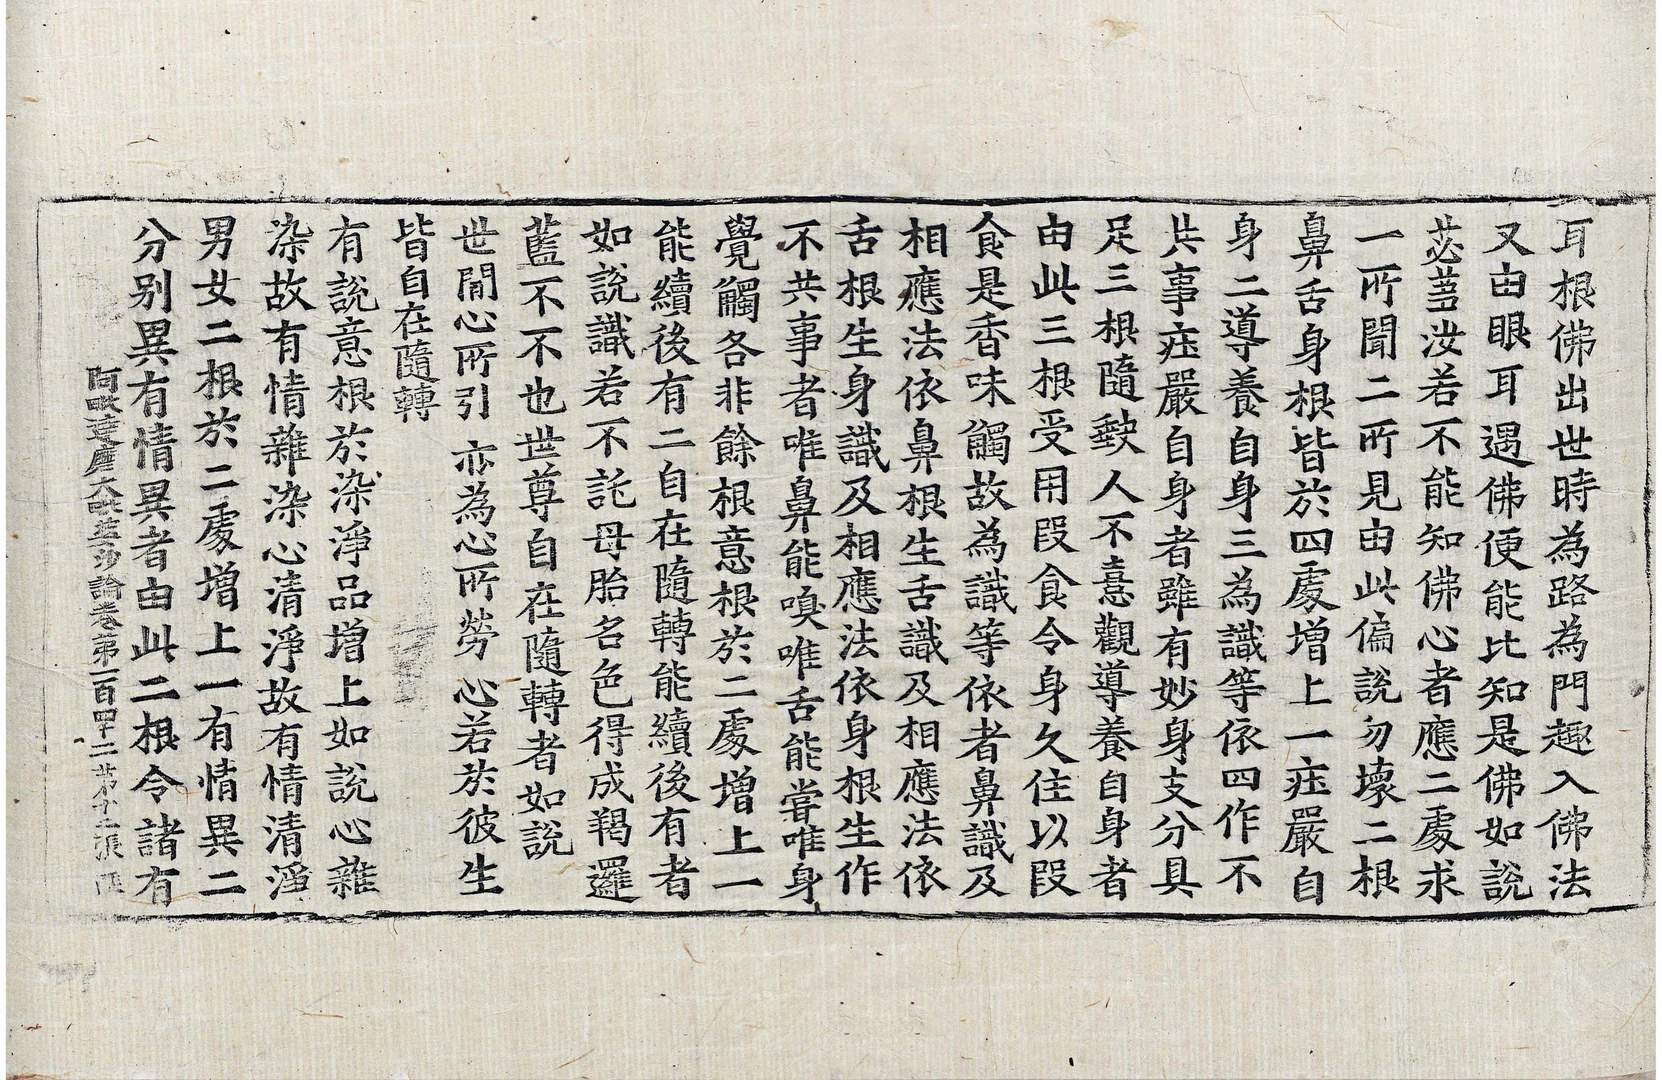 耳根佛出世時為路為門趣入佛法
又由眼耳遇佛便能比知是佛如說
苾蒭汝若不能知佛心者應二處求
一所聞二所見由此偏說勿壞二根
鼻舌身根皆於四處增上一莊嚴自
身二導養自身三為識等依四作不
共事莊嚴自身者雖有妙身支分具
足三根隨缺人不憙觀導養自身者
由此三根受用段食令身久住以段
食是香味觸故為識等依者鼻識及
相應法依鼻根生舌識及相應法依
舌根生身識及相應法依身根生作
不共事者唯鼻能嗅唯舌能嘗唯身
覺觸各非餘根意根於二處增上一
能續後有二自在隨轉能續後有者
如說識若不託母胎名色得成羯邏
藍不不也世尊自在隨轉者如說
世間心所引 亦為心所勞 心若於彼生
皆自在隨轉
有說意根於染淨品增上如說心雜
染故有情雜染心清淨故有情清淨
男女二根於二處增上一有情異二
分別異有情異者由此二根令諸有
阿毗達磨大毗婆沙論卷第一百四十二 第十二張